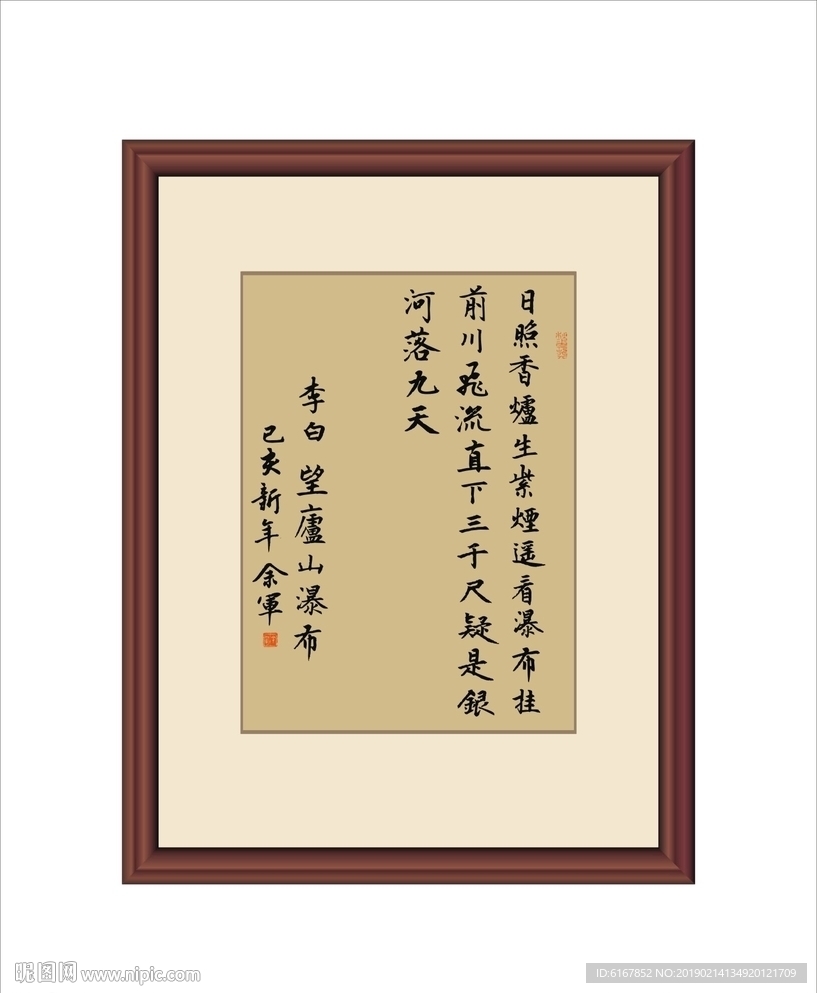 日照香爐生紫煙遥看瀑布挂
前川飛流直下三千尺疑是銀
河落九天
李白 望廬山瀑布
己亥新年 余軍
昵图网 www.nipic.com
ID:6167852 NO:20190214134920121709